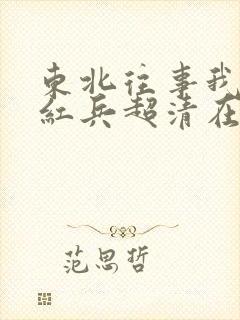 東北往事我
紅兵超清在
范思哲